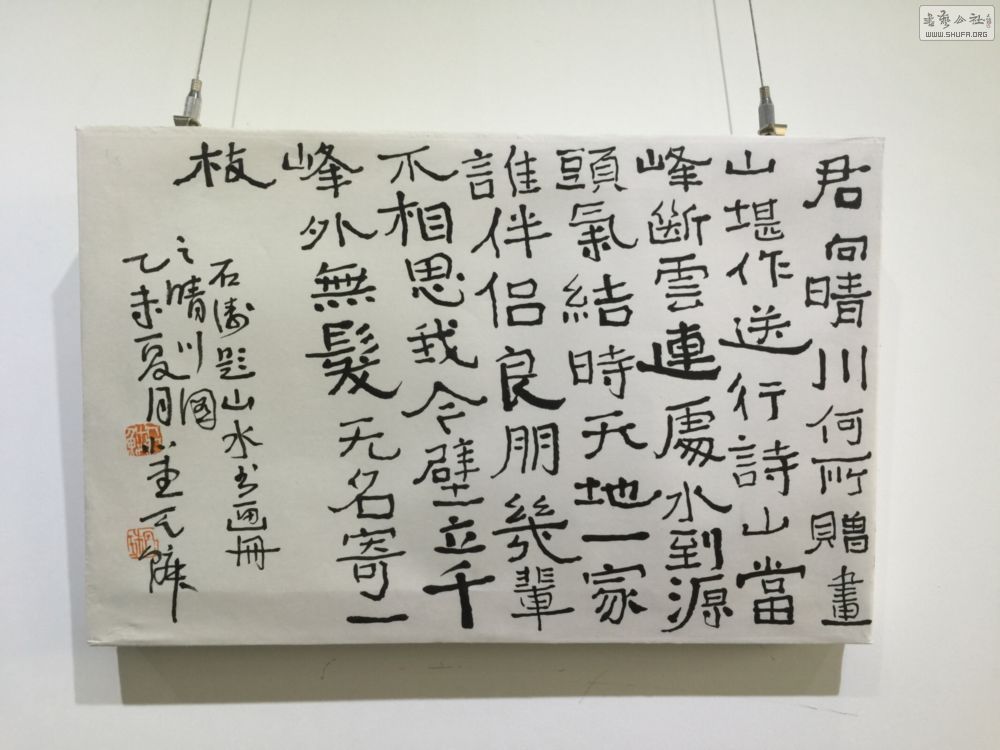 君向晴川何所贈畫
山堪作送行詩山當
峰斷雲連處水到源
頭氣結時天地一家
誰伴侶良朋幾輩言
不相思我今壁立千
峰外無髮无名寄一
枝
石濤題山水書画冊
之晴川圖
乙未夏月
書藝公社
WWW.SHUFA.ORG